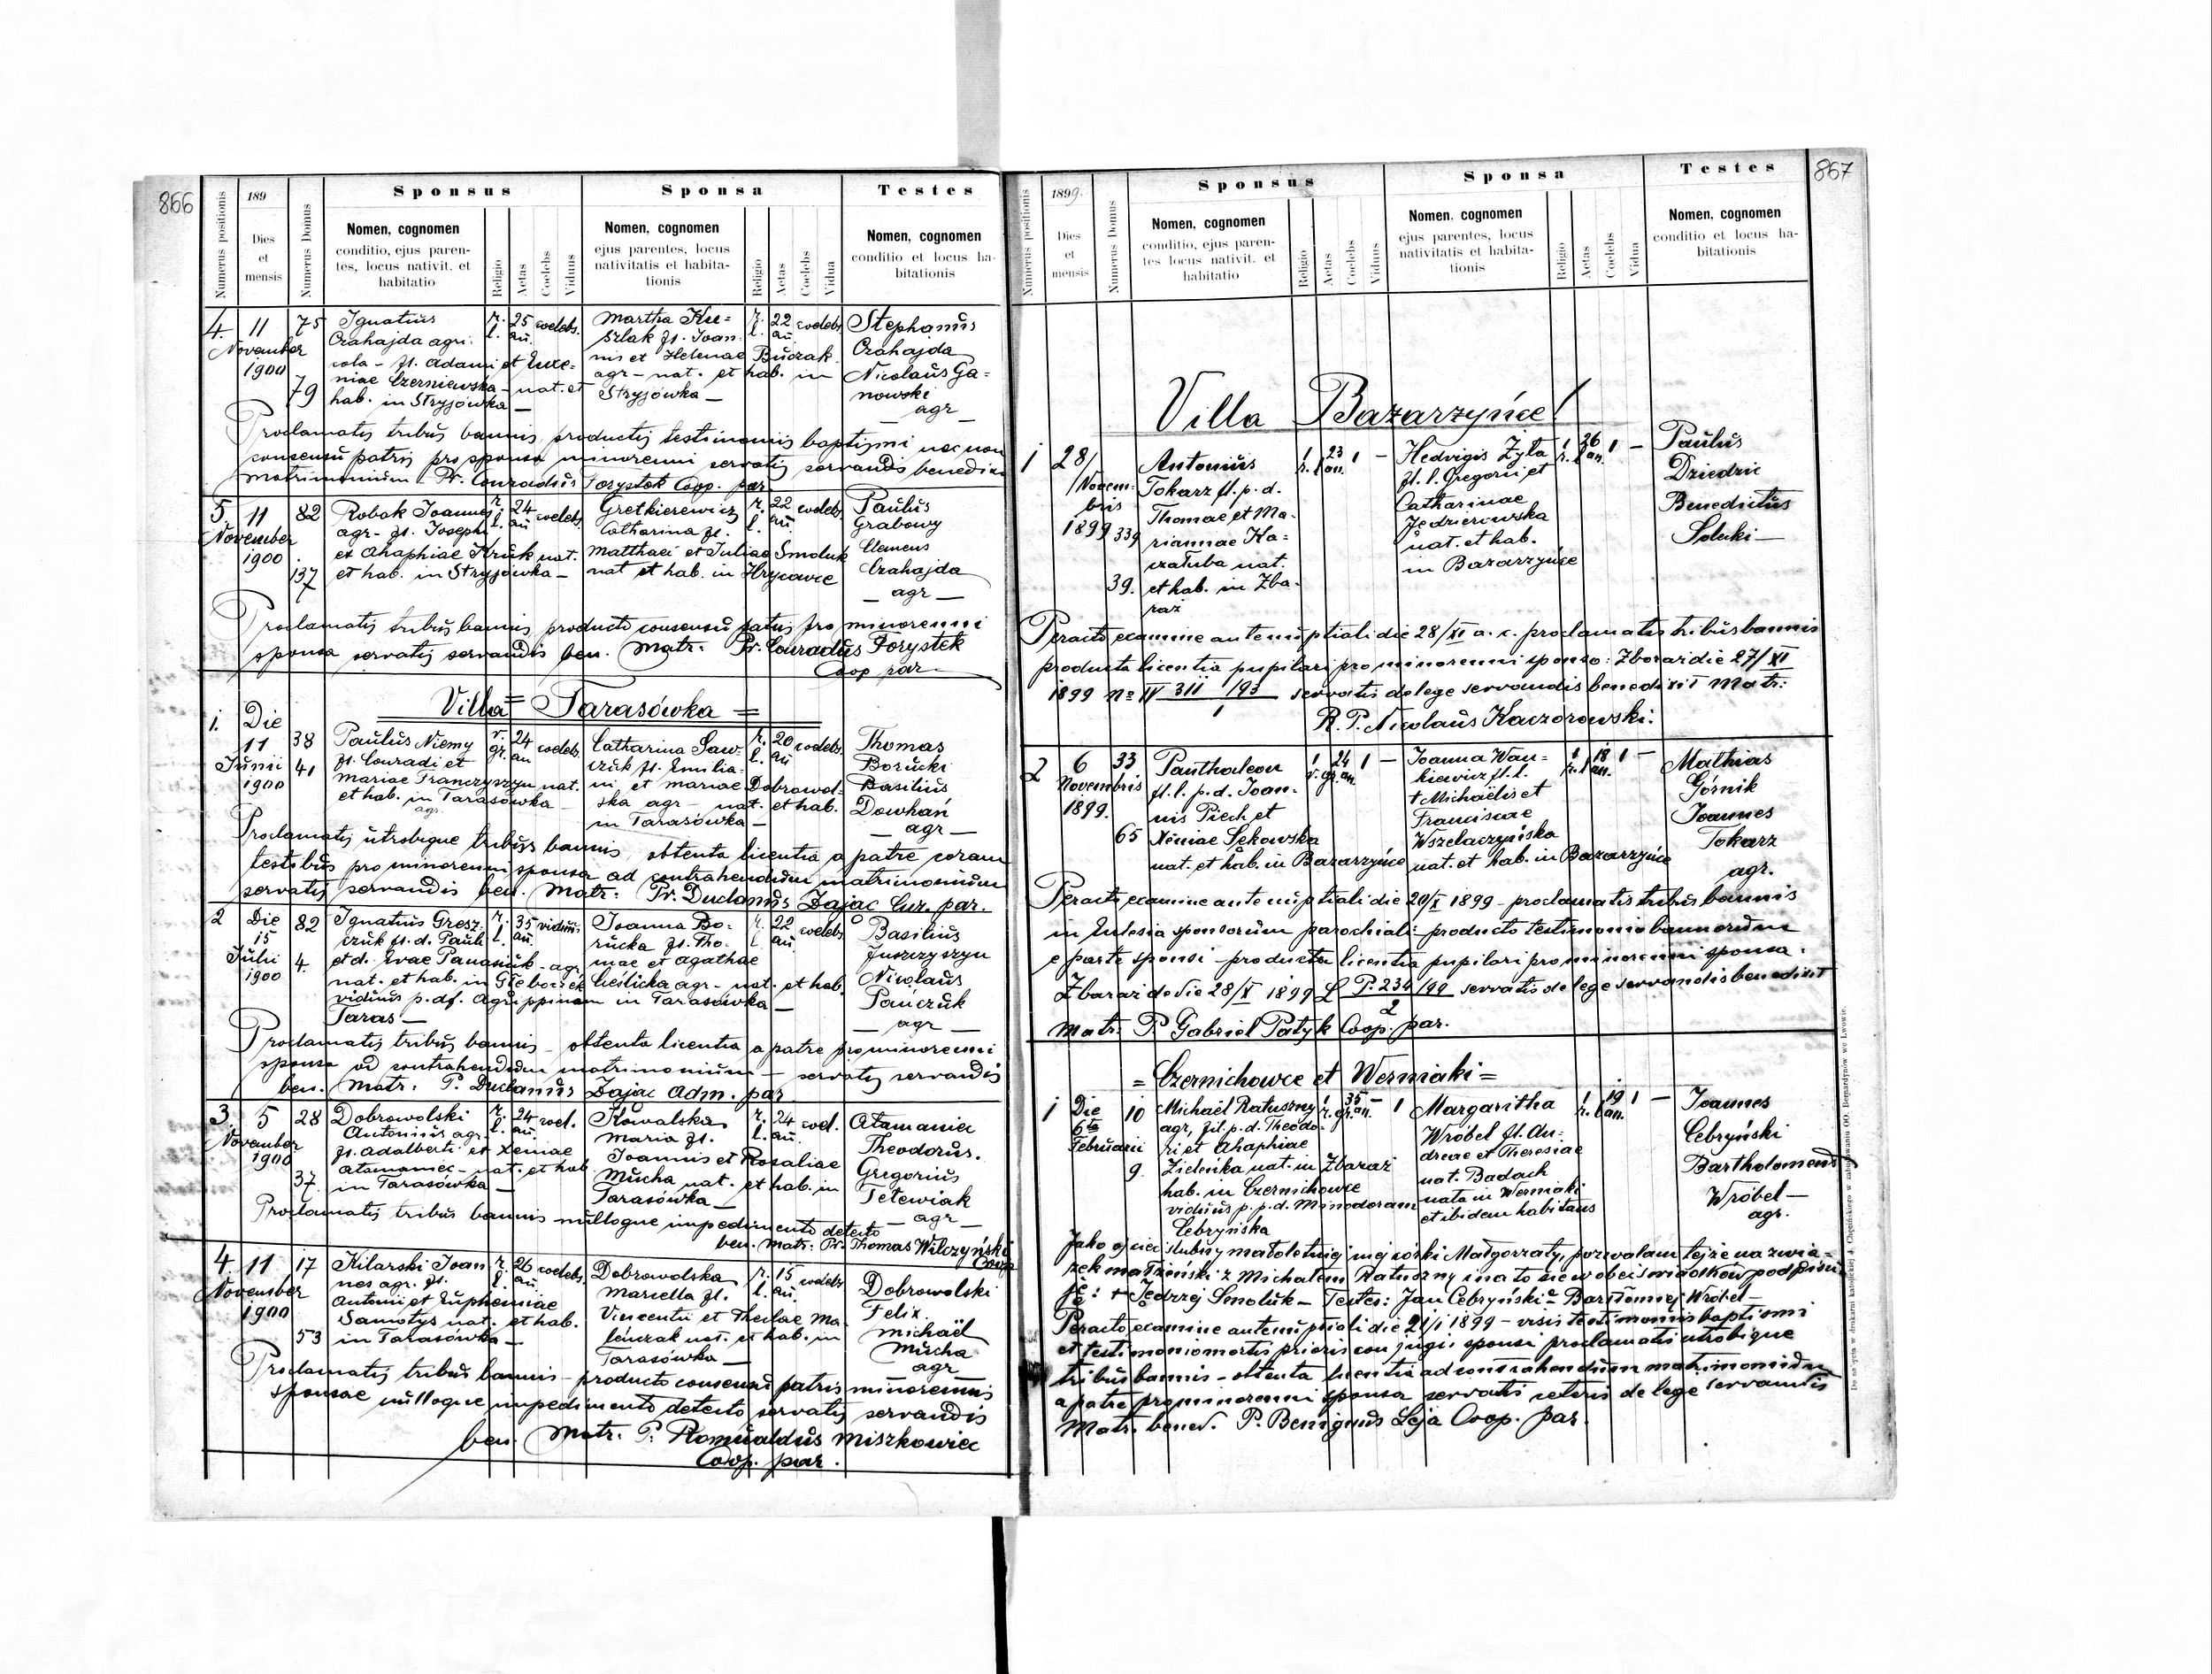 866
Numerus positionis
189
Dies
et
mensis
Numerus Domus
Sponsus
Nomen, cognomen
conditio, ejus paren-
tes, locus nativit. et
habitatio
Religio
Aetas
Coelebs
Viduus
Sponsa
Nomen, cognomen
ejus parentes, locus
nativitatis et habita-
tionis
Religio
Aetas
Coelebs
Vidua
Testes
Nomen, cognomen
conditio et locus ha-
bitationis
4. 11 November 1900
75
79
Ignatius
Czahajda agri-
cola - fl. Adami et Euxe-
niae Czerniewska - nat. et
hab. in Stryjówka —
r. l. 25 an. coelebs.
Martha Ku=
szlak fl. Joan
nis et Helenae Buczak
agr - nat. et hab. in
Stryjówka —
r. l. 22 an. coelebs
Stephanus
Czahajda
Nicolaus Ga=
nowski
— agr —
Proclamatis tribus bannis productis testimoniis baptismi nec non
consensu patris pro sponsa minorenni servatis servandis
matrimonium Pr. Conradus Forystek Coop. par.
5 11 November 1900
82
137
Robak Joannes
agr - fl. Joseph
et Ahaphiae Kruk nat.
et hab. in Stryjówka —
r. l. 24 an coelebs
Gretkierewicz
Catharina fl.
Matthaei et Juliae Smoluk
nat et hab. in Hrycowce
r. l. 22 an coelebs
Paulus
Grabowy
Clemens
Czahajda
— agr —
Proclamatis tribus bannis producto consensu patris pro minorenni
sponsa servatis servandis ben. Matr. Pr. Conradus Forystek
Coop par
Villa = Tarasówka =
1. Die 11 Junii 1900
38
41
Paulus Niemy
fl. Conradi et
Mariae Franczyszyn nat.
et hab. in Tarasówka
agr.
r. gr. 24 an coelebs
Catharina Saw-
czuk fl. Emilia-
ni et Mariae Dobrowol-
ska agr - nat. et hab.
in Tarasówka —
r. l. 20 an coelebs
Thomas
Borucki
Basilius
Dowhań
— agr —
Proclamatis utrobique tribus bannis obtenta licentia a patre coram
testibus pro minorenni sponsa ad contrahendum matrimonium
servatis servandis ben. Matr: Pr. Duclanus Zając Cur. par.
2 Die 15 Julii 1900
82
4.
Ignatius Gresz-
czuk fl. d. Pauli
et d. Evae Panasiuk - agr
nat. et hab. in Głęboczek
viduus p. df. Agrippinam
Taras —
r. l. 35 an. viduus.
Joanna Bo-
rucka fl. Tho-
mae et Agathae
Cieślicka agr - nat. et hab.
in Tarasówka —
r. l. 22 an. coelebs
Basilius
Juszczyszyn
Nicolaus
Pańczuk
— agr —
Proclamatis tribus bannis - obtenta licentia a patre pro minorenni
sponsa ad contrahendum matrimonium - servatis servandis
ben. Matr. P. Duclanus Zając Adm. par
3. 5 November 1900
28
37.
Dobrowolski
Antonius agr.
fl. Adalberti et Xeniae
Atamaniec - nat. et hab
in Tarasówka —
r. l. 24 an. coel.
Kowalska
Maria fl.
Joannis et Rosaliae
Mucha nat. et hab. in
Tarasówka —
r. l. 24 an. coel.
Atamaniec
Theodorus.
Gregorius
Tetewiak
— agr —
Proclamatis tribus bannis nulloque impedimento detecto
ben. Matr: Pr. Thomas Wilczyński
Coop
4. 11 November 1900
17
53
Kilarski Joan
nes agr. fl.
Antonii et Euphemiae
Samotys nat. et hab.
in Tarasówka —
r. l. 26 an. coelebs
Dobrowolska
Mariella fl.
Vincentii et Theclae Ma-
leńczak nat. et hab. in
Tarasówka —
r. l. 15 an. coelebs
Dobrowolski
Felix
Michaël
Mucha
agr
Proclamatis tribus bannis - producto consensu patris minorennis
sponsae nulloque impedimento detecto servatis servandis
ben. Matr. P. Romualdus Miszkowiec
Coop. par.
867
Numerus positionis
1899.
Dies
et
mensis
Numerus Domus
Sponsus
Nomen, cognomen
conditio, ejus paren-
tes locus nativit. et
habitatio
Religio
Aetas
Coelebs
Viduus
Sponsa
Nomen, cognomen
ejus parentes, locus
nativitatis et habita-
tionis
Religio
Aetas
Coelebs
Vidua
Testes
Nomen, cognomen
conditio et locus ha-
bitationis
Villa Bazarzyńce!
1 28/ Novem- bris 1899
339
39.
Antonius
Tokarz fl. p. d.
Thomae et Ma-
riannae Ka=
czałuba nat.
et hab. in Zba-
raż
1 r. l 23 an. 1 —
Hedvigis Żyła
fl. l. Gregorii et
Catharinae
Jędzierowska
nat. et hab.
in Bazarzyńce
1 r. l 26 an. 1 —
Paulus
Dziedzic
Benedictus
Solecki —
Peracto examine antenuptiali die 28/XI a. c. proclamatis tribus bannis
producta licentia pupilari pro minorenni sponso: Zbaraż die 27/XI
1899 No IV 311/93 servatis de lege servandis benedixit Matr:
1
R. P. Nicolaus Kaczorowski.
2 6 Novembris 1899.
33
65
Panthaleon
fl. l. p. d. Joan-
nis Piech et
Xeniae Sękowska
nat. et hab. in Bazarzyńce
1 r. gr. 24 an. 1 —
Joanna Wan-
kiewicz fl. l.
+ Michaëlis et
Franciscae
Wszelaczyńska
nat. et hab. in Bazarzyńce
1 r. l 18 an. 1 —
Mathias
Górnik
Joannes
Tokarz
agr.
Peracto examine antenuptiali die 20/X 1899 - proclamatis tribus bannis
in Eclesia sponsorum parochiali - producto testimonio bannorum
e parte sponsi - producta licentia pupilari pro minorenni sponsa.
Zbaraż de die 28/X 1899 L P. 234/99 servatis de lege servandis benedixit
2
Matr. P. Gabriel Patyk Coop. par.
= Czernichowce et Werniaki =
1 Die 6ta Februarii
10
9.
Michaël Ratuszny
agr, fil. p. d. Theodo-
ri et Ahaphiae
Zieleńka nat. in Zbaraż
hab. in Czernichowce
viduus p. p. d. Minodoram
Cebryńska
1 r. gr. 35 an. — 1
Margaritha
Wróbel fl. An-
dreae et Theresiae
nat. Badach
nata in Werniaki
et ibidem habitans
1 r. l 19 an. 1 —
Joannes
Cebryński
Bartholomeus
Wróbel —
agr.
Jako ojciec ślubny małoletniej mej córki Małgorzaty, pozwalam tejże na zwią-
zek małżeński z Michałem Ratuszny i na to się wobec świadków podpisu
ję: + Jędrzej Smoluk - Testes: Jan Cebryński - Bartłomiej Wróbel -
Peracto examine antenuptiali die 21/1 1899 - visis testimoniis baptismi
et testimonio mortis prioris conjugis sponsi proclamatis utrobique
tribus bannis - obtenta licentia ad contrahendum matrimonium
a patre pro minorenni sponsa servatis ceteris de lege servandis
Matr. bened. P. Benignus Leja Coop. par.